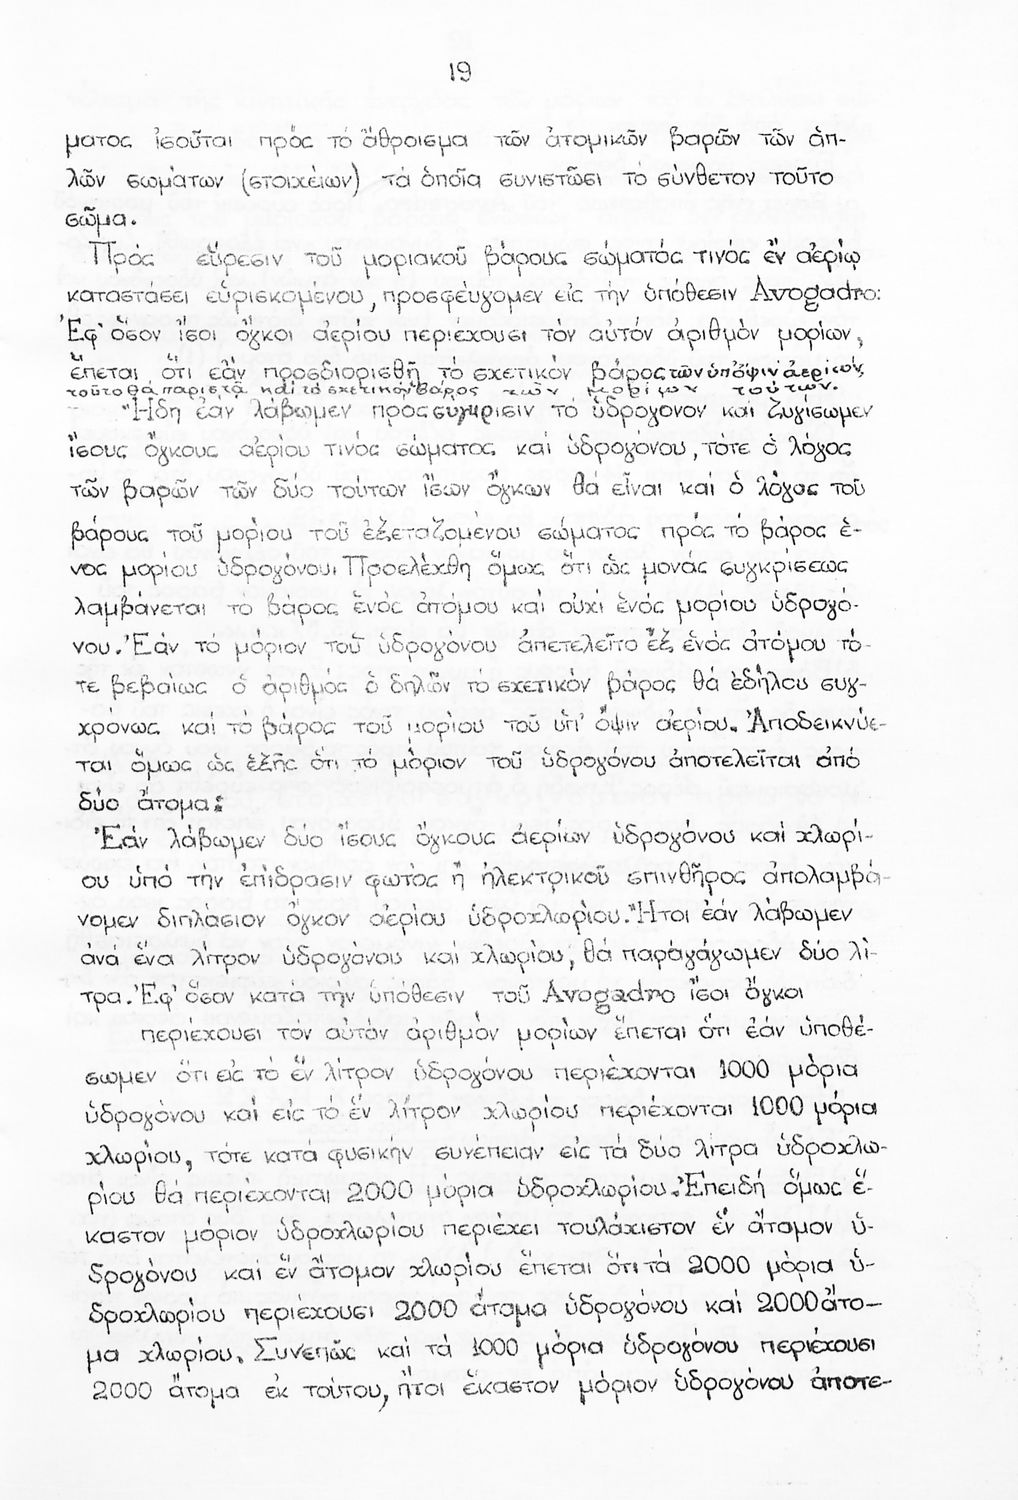 19
ματος ἰσοῦται πρός τό ἄθροισμα τῶν ἀτομικῶν βαρῶν τῶν ἁπ-
λῶν σωμάτων (στοιχείων) τά ὁποῖα συνιστῶσι τό σύνθετον τοῦτο
σῶμα.
Πρός εὕρεσιν τοῦ μοριακοῦ βάρους σώματός τινός ἐν ἀερίῳ
καταστάσει εὑρισκομένου, προσφεύγομεν εἰς τήν ὑπόθεσιν Avogadro:
Ἐφ' ὅσον ἴσοι ὄγκοι ἀερίου περιέχουσι τόν αὐτόν ἀριθμόν μορίων,
ἕπεται ὅτι ἐάν προσδιορισθῇ τό σχετικόν βάρος τῶν ὑπόψιν ἀερίων,
τοῦτο θά παριστᾷ καί τό σχετικόν βάρος τῶν μορίων τούτων.
Ἤδη ἐάν λάβωμεν πρός σύγκρισιν τό ὑδρογόνον καί ζυγίσωμεν
ἴσους ὄγκους ἀερίου τινός σώματος καί ὑδρογόνου, τότε ὁ λόγος
τῶν βαρῶν τῶν δύο τούτων ἴσων ὄγκων θά εἶναι καί ὁ λόγος τοῦ
βάρους τοῦ μορίου τοῦ ἐξεταζομένου σώματος πρός τό βάρος ἑ-
νος μορίου ὑδρογόνου. Προελέχθη ὅμως ὅτι ὡς μονάς συγκρίσεως
λαμβάνεται τό βάρος ἑνός ἀτόμου καί οὐχί ἑνός μορίου ὑδρογό-
νου. Ἐάν τό μόριον τοῦ ὑδρογόνου ἀπετελεῖτο ἐξ ἑνός ἀτόμου τό-
τε βεβαίως ὁ ἀριθμός ὁ δηλῶν τό σχετικόν βάρος θά ἐδήλου συγ-
χρόνως καί τό βάρος τοῦ μορίου τοῦ ὑπ' ὄψιν ἀερίου. Ἀποδεικνύε-
ται ὅμως ὡς ἑξῆς ὅτι τό μόριον τοῦ ὑδρογόνου ἀποτελεῖται ἀπό
δύο ἄτομα:
Ἐάν λάβωμεν δύο ἴσους ὄγκους ἀερίων ὑδρογόνου καί χλωρί-
ου ὑπό τήν ἐπίδρασιν φωτός ἤ ἠλεκτρικοῦ σπινθῆρος ἀπολαμβά-
νομεν διπλάσιον ὄγκον ἀερίου ὑδροχλωρίου. Ἤτοι ἐάν λάβωμεν
ἀνά ἕνα λίτρον ὑδρογόνου καί χλωρίου, θά παραγάγωμεν δύο λί-
τρα. Ἐφ' ὅσον κατά τήν ὑπόθεσιν τοῦ Avogadro ἴσοι ὄγκοι
περιέχουσι τόν αὐτόν ἀριθμόν μορίων ἕπεται ὅτι ἐάν ὑποθέ-
σωμεν ὅτι εἰς τό ἕν λίτρον ὑδρογόνου περιέχονται 1000 μόρια
ὑδρογόνου καί εἰς τό ἕν λίτρον χλωρίου περιέχονται 1000 μόρια
χλωρίου, τότε κατά φυσικήν συνέπειαν εἰς τά δύο λίτρα ὑδροχλω-
ρίου θά περιέχονται 2000 μόρια ὑδροχλωρίου. Ἐπειδή ὅμως ἕ-
καστον μόριον ὑδροχλωρίου περιέχει τουλάχιστον ἕν ἄτομον ὑ-
δρογόνου καί ἕν ἄτομον χλωρίου ἕπεται ὅτι τά 2000 μόρια ὑ-
δροχλωρίου περιέχουσι 2000 ἄτομα ὑδρογόνου καί 2000 ἄτο-
μα χλωρίου. Συνεπῶς καί τά 1000 μόρια ὑδρογόνου περιέχουσι
2000 ἄτομα ἐκ τούτου, ἤτοι ἕκαστον μόριον ὑδρογόνου ἀποτε-